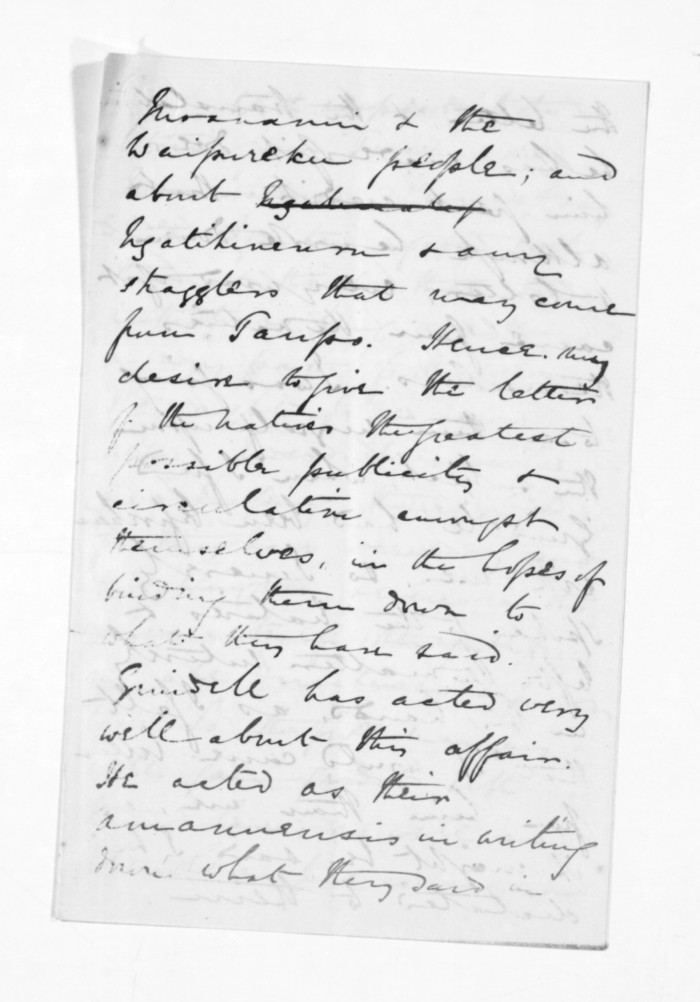 & the
Waipureku people; and
about
Ngatihineuru & any
stragglers that may come
from Taupo. Hence my
desire to give the letters
of the natives the greatest
possible publicity &
circulation amongst
themselves, in the hopes of
binding them down to
what they have said.
Grindell has acted very
well about this affair.
He acted as their
amanuensis in writing
down what they said in